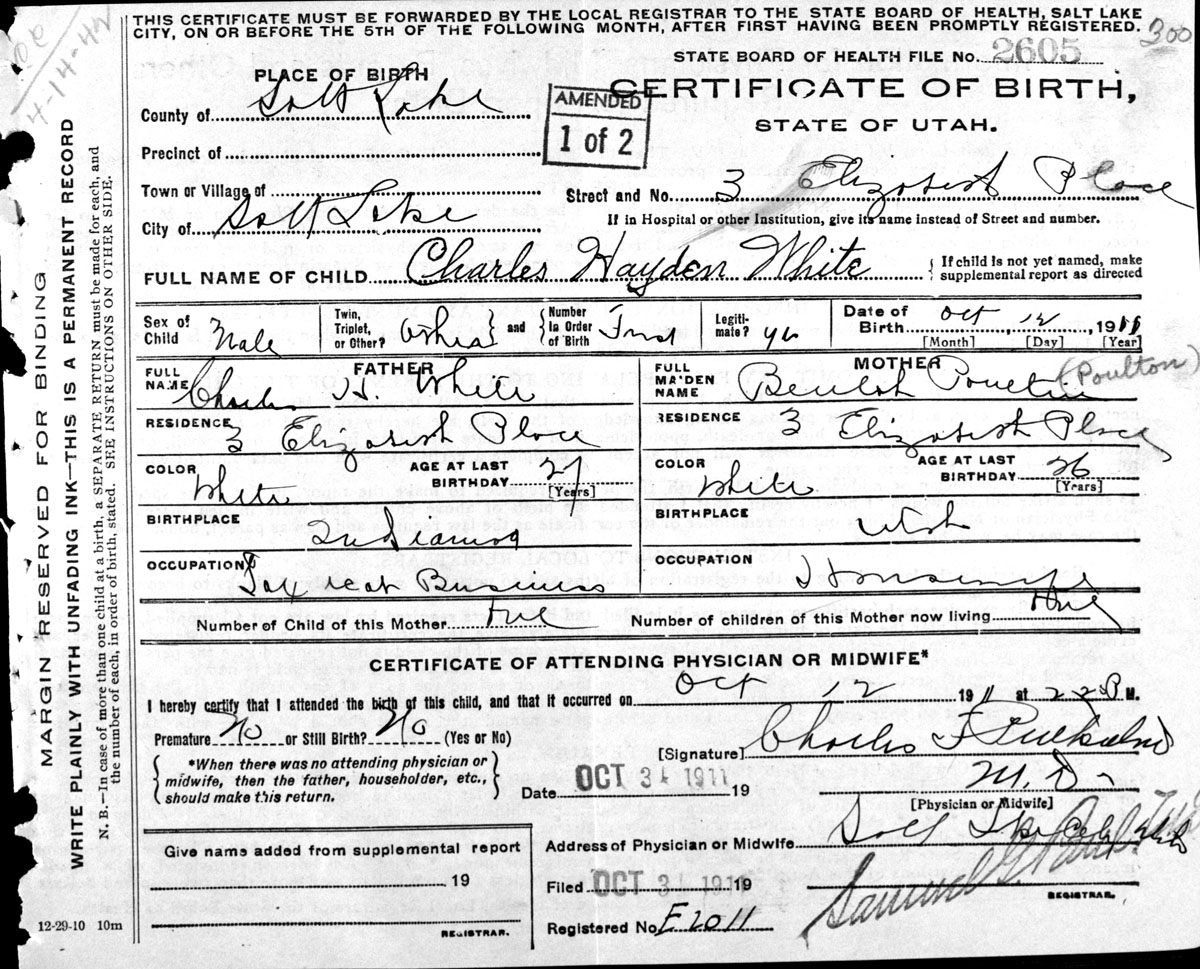 THIS CERTIFICATE MUST BE FORWARDED BY THE LOCAL REGISTRAR TO THE STATE BOARD OF HEALTH, SALT LAKE
CITY, ON OR BEFORE THE 5TH OF THE FOLLOWING MONTH, AFTER FIRST HAVING BEEN PROMPTLY REGISTERED.
300
4-14-42
STATE BOARD OF HEALTH FILE No. 2605
PLACE OF BIRTH
CERTIFICATE OF BIRTH,
STATE OF UTAH.
AMENDED
1 of 2
County of Salt Lake
Precinct of
Town or Village of
City of Salt Lake
Street and No. 3 Elizabeth Place
If in Hospital or other Institution, give its name instead of Street and number.
FULL NAME OF CHILD Charles Hayden White
{ If child is not yet named, make
supplemental report as directed
Sex of Child Male
Twin, Triplet, or Other?
and { Number in Order of Birth
Legitimate? yes
Date of Birth Oct 12 1911
[Month] [Day] [Year]
FATHER
FULL NAME Charles H. White
RESIDENCE 3 Elizabeth Place
COLOR White
AGE AT LAST BIRTHDAY 27
[Years]
BIRTHPLACE
OCCUPATION Business
MOTHER
FULL MAIDEN NAME Beulah (Poulton)
RESIDENCE 3 Elizabeth Place
COLOR White
AGE AT LAST BIRTHDAY 26
[Years]
BIRTHPLACE Utah
OCCUPATION Housewife
Number of Child of this Mother
Number of children of this Mother now living
CERTIFICATE OF ATTENDING PHYSICIAN OR MIDWIFE*
I hereby certify that I attended the birth of this child, and that it occurred on Oct 12 1911 at P M.
Premature No or Still Birth? No (Yes or No)
*When there was no attending physician or
midwife, then the father, householder, etc.,
should make this return.
[Signature] Charles F
M. D.
Date OCT 31 1911 19
[Physician or Midwife]
Address of Physician or Midwife Salt Lake City Utah
Filed OCT 31 1911 19
Samuel G. Paul
REGISTRAR.
Registered No. E2011
Give name added from supplemental report
19
REGISTRAR.
12-29-10 10m
MARGIN RESERVED FOR BINDING
WRITE PLAINLY WITH UNFADING INK—THIS IS A PERMANENT RECORD
N. B.—In case of more than one child at a birth, a SEPARATE RETURN must be made for each, and
the number of each, in order of birth, stated. SEE INSTRUCTIONS ON OTHER SIDE.